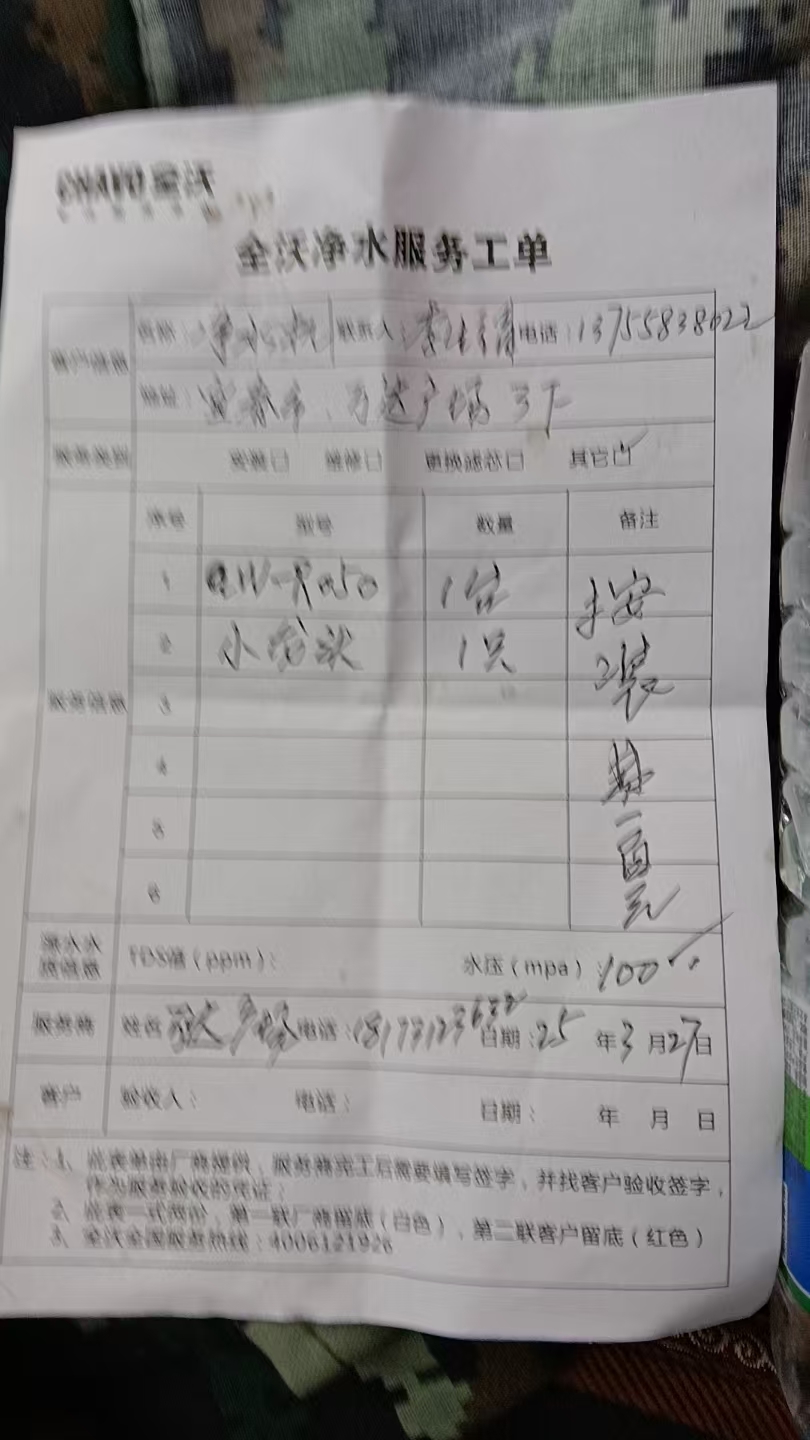 全沃
全沃净水服务工单
客户信息
名称：净水机 联系人： 电话：13755838622
地址：宜春市，万达广场3下
服务类别 安装口 维修口 更换滤芯口 其它口✓
服务信息
序号 型号 数量 备注
1 1台 安
2 小龙头 1只 装
3
4
5 一百
6 元
源水水质信息 TDS值（ppm）： 水压（mpa）：100
服务商 姓名 广场 电话： 日期：25年3月27日
客户 验收人： 电话： 日期： 年 月 日
注：1、此表单由厂商提供，服务商完工后需要填写签字，并找客户验收签字，
作为服务验收的凭证；
2、此表一式两份，第一联厂商留底（白色），第二联客户留底（红色）
3、全沃全国服务热线：4006121926